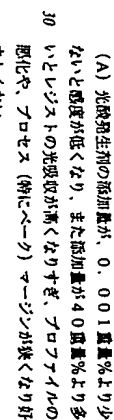 (A) 光酸発生剤の添加量が、0.001重量%より少
ないと感度が低くなり、また添加量が40重量%より多
30 いとレジストの光吸収が高くなりすぎ、プロファイルの
悪化や、プロセス(特にベーク)マージンが狭くなり好